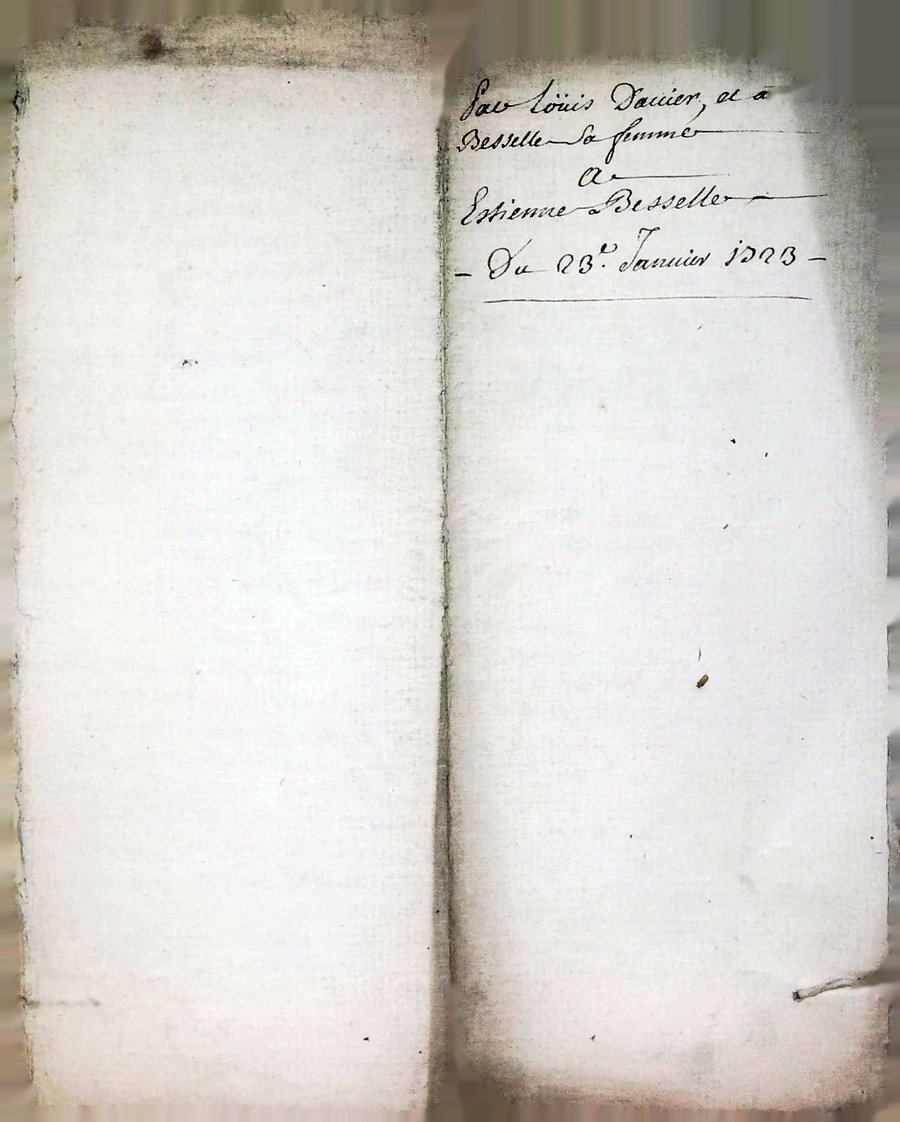 Par Loüis Dauier, et a
Besselle Sa femme
A
Estienne Besselle
- Du 23e. Januier 1723 -